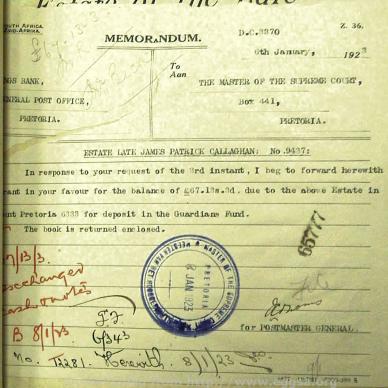 Estate of the late
SOUTH AFRICA.
MEMORANDUM.
D.C.3370
Z. 36.
6th January, 1923
To
Aan
NGS BANK,
THE MASTER OF THE SUPREME COURT,
ENERAL POST OFFICE,
Box 441,
PRETORIA.
PRETORIA.
ESTATE LATE JAMES PATRICK CALLAGHAN: No.9437:
In response to your request of the 3rd instant, I beg to forward herewith
rant in your favour for the balance of £67.13s.3d, due to the above Estate in
unt Pretoria 6333 for deposit in the Guardians Fund.
The book is returned enclosed.
65777
MASTER OF THE SUPREME
PRETORIA
8 JAN 1923
7/13/3
exchanged
B 8/1/23
6343
No. 12281. Herewith 8/1/23
for POSTMASTER GENERAL.